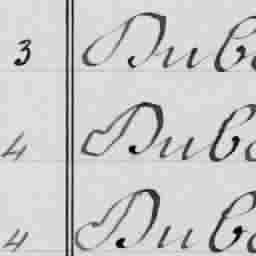 3 Dub
4 Dub
4 Dub